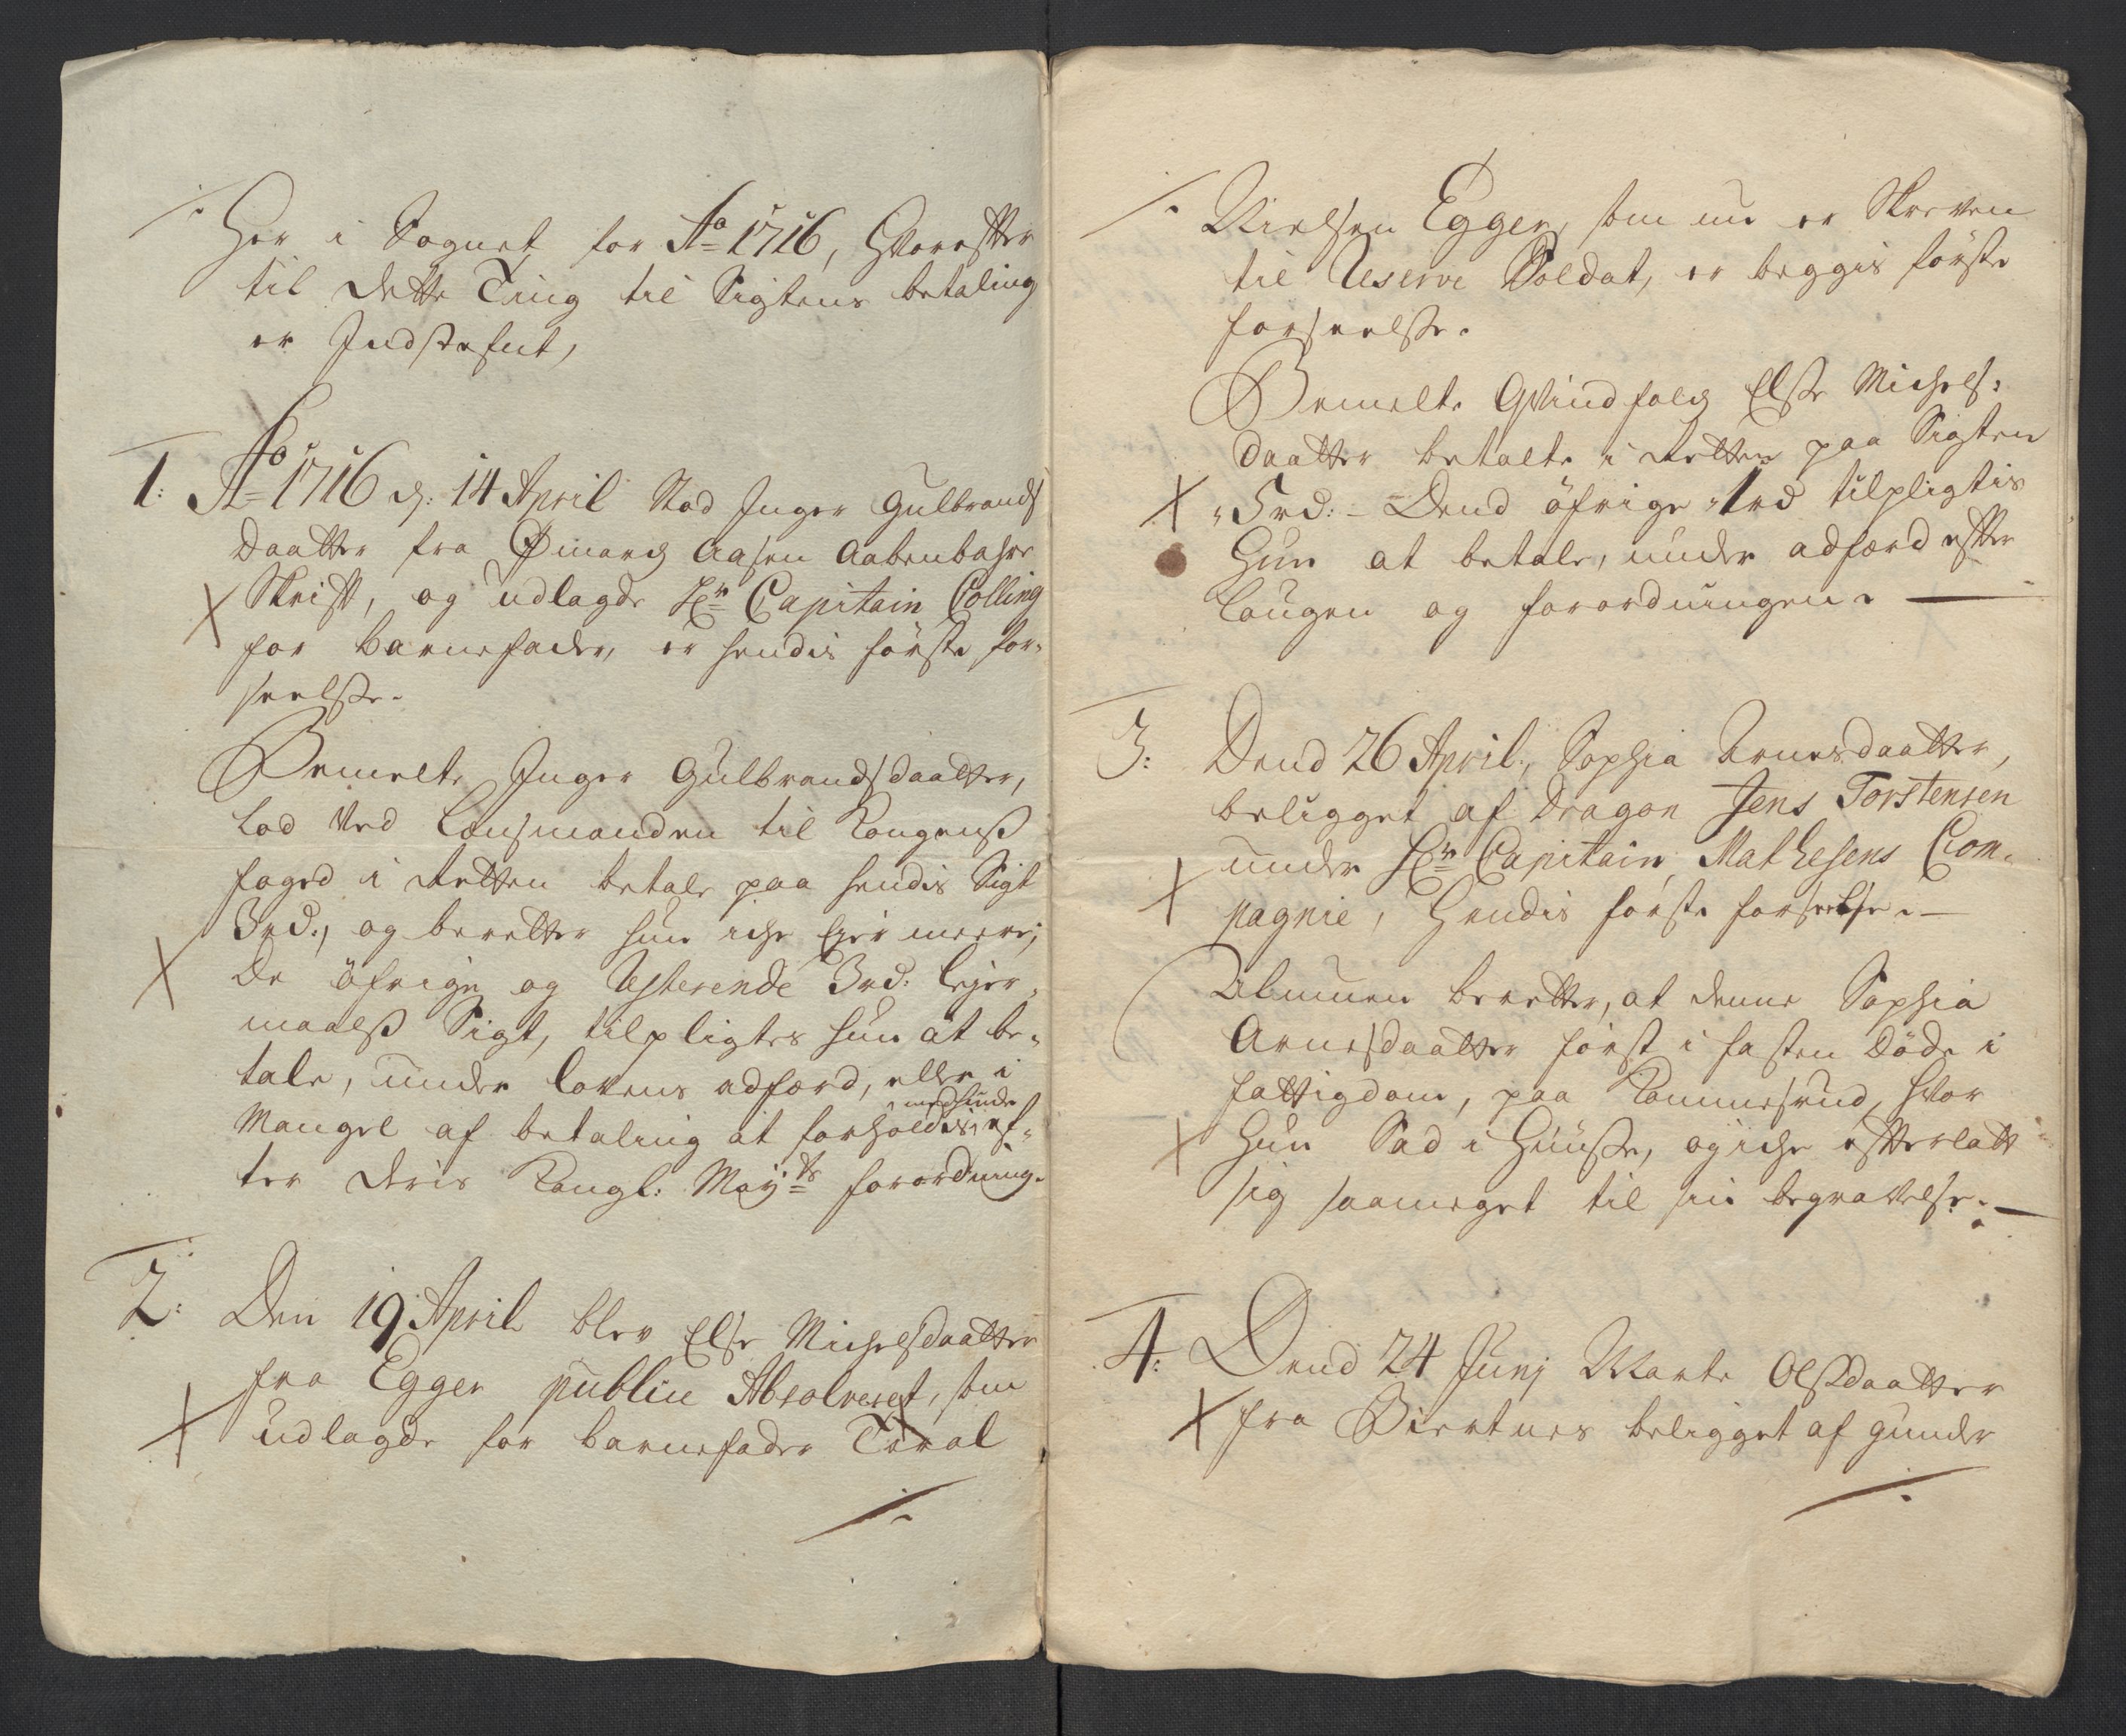 Her i Sognet for Ao 1716, Hvorefter
til dette Ting til Sigtens betaling
er Indstefnt,
1: Ao 1716 d: 14 April Stod Inger Gulbrands
daatter fra Aasen Aabenbahre
Skrift, og udlagde Hr Capitain Colling
for barnefader, er hendis förste for-
seelsse.
Bemelte Inger Gulbrandsdaatter,
lod ved Lensmanden til Kongens
foged i Retten betale paa hendis Sigt
3rd:, og beretter hun iche Ejer meere;
De öfrige og Resterende 3rd: Leyer-
maalss Sigt, tilpligtes hun at be-
tale, under lovens adfærd, eller i
Mangel af betaling at forholdis med hende ef-
ter deris Kongl: Mayts forordning.
2: Den 19 April blev Else Michelsdaatter
fra Egger publice Absolveret, som
udlagde for barnefader Toral
Nielsen Egger, som nu er Skreven
til Reserve Soldat, er beggis förste
forseelsse.
Bemelte Qvindfolch Elsse Michels-
daatter betalte i Retten paa Sigten
5rd: - Dend öfrige 1rd tilpligtis
Hun at betale, under adfærd efter
Laugen og forordningen.
3: Dend 26 April, Sophia Arnesdaatter,
beligget af Dragon Jens Torstensen
under Hr Capitain Mathesens Com-
pagnie, Hendis förste forseelse.
Almuen beretter, at denne Sophia
Arnesdaatter först i fasten döde i
fattigdom, paa hvor
Hun Sad i Huusse, og iche efterlatt
sig saameget til sin begravelse.
4: Dend 24 Junj Marte Olssdaatter
fra Biertnes beligget af Gunder